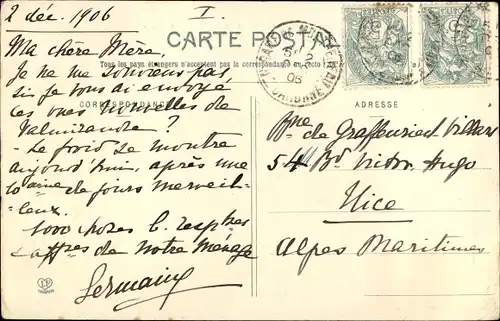 2 déc. 1906 I.
CARTE POSTALE
Tous les pays étrangers n'acceptent pas la correspondance au recto
CORRESPONDANCE
ADRESSE
Ma chère Mère,
Je ne me souviens pas,
si je vous ai envoyé
ces vues nouvelles de
Valmirande?
- Le froid se montre
aujourd'hui, après une
10aine de jours merveil-
leux.
1000 choses b. respttes
& affres de notre ménage
Germain
Bne de Graffenried Villars
54 Bd Victor Hugo
Nice
Alpes Maritimes